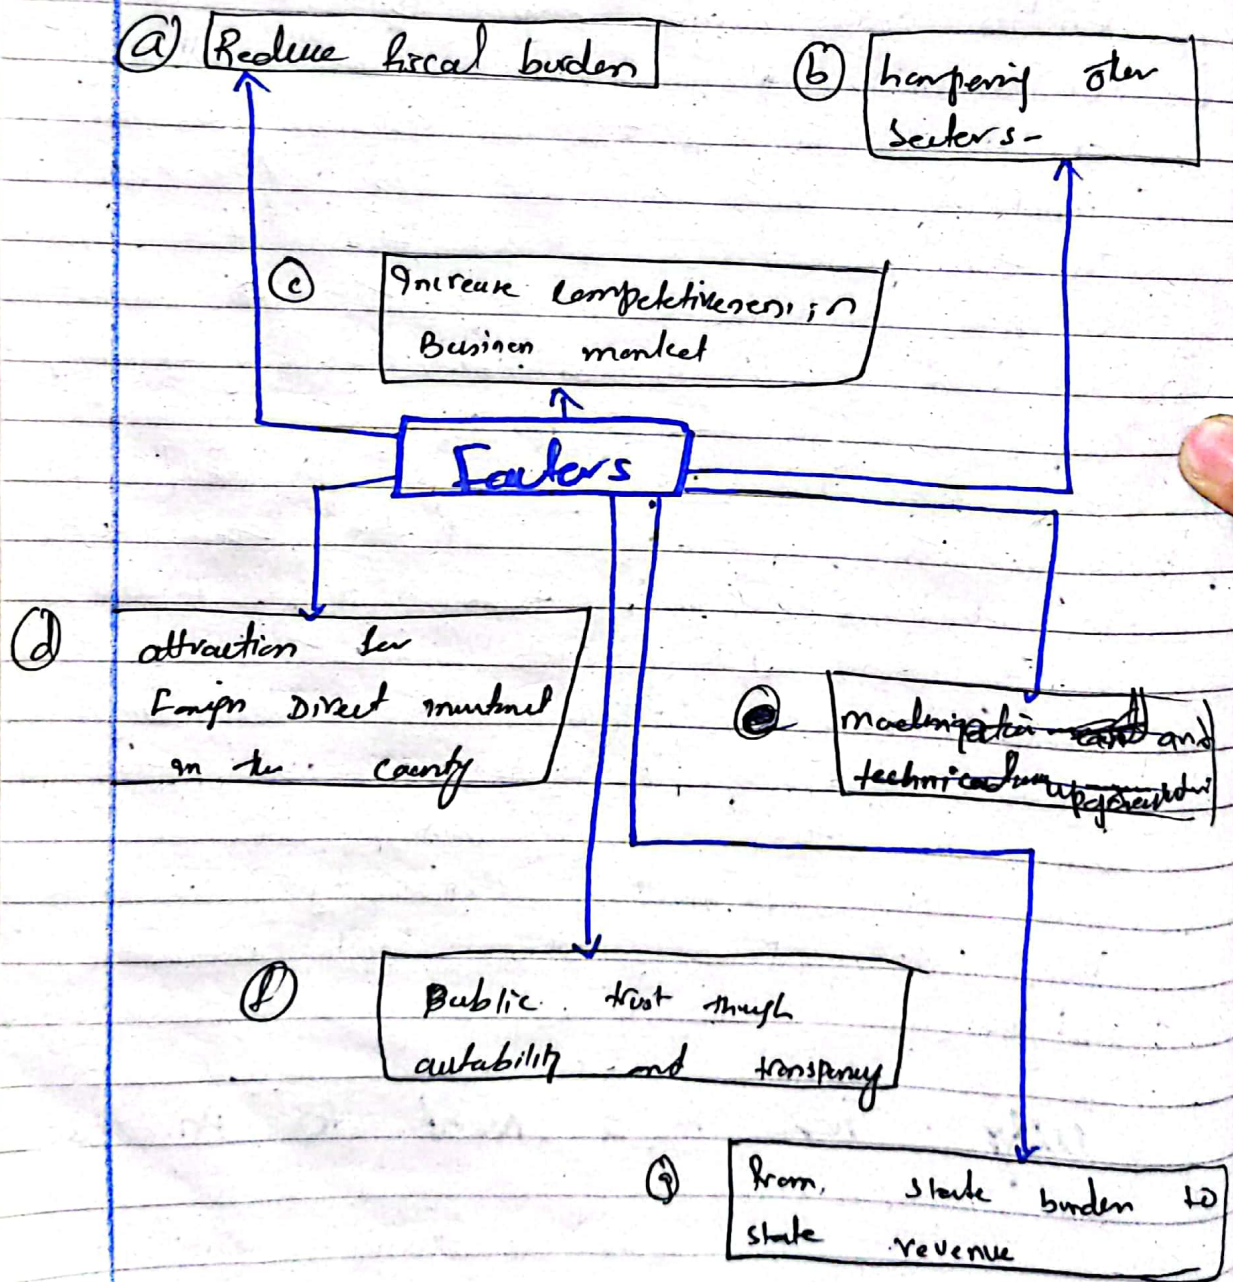 a) Reduce fiscal burden
b) hampering other
Secters-
c) Increase Competetiveness in
Business market
Facters
d) attraction for
Foreign Direct investment
in the country
modernization and
technical upgradation
f) Public trust through
and transparency
g) From state burden to
state revenue